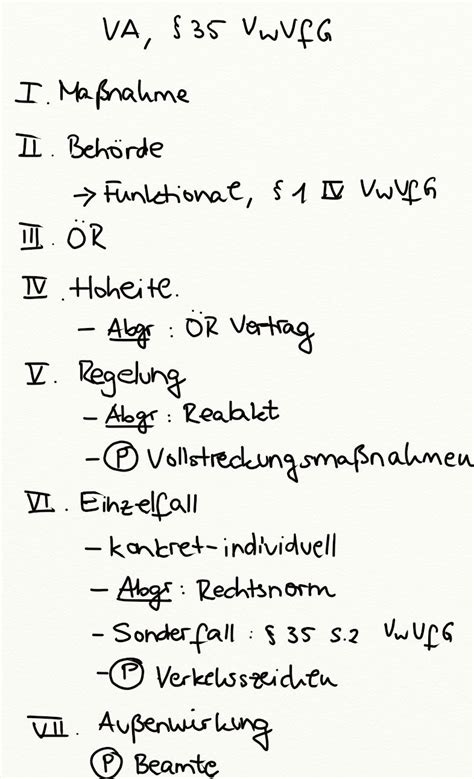 VA, § 35 VwVfG
I. Maßnahme
II. Behörde
→ Funktional, § 1 IV VwVfG
III. ÖR
IV. Hoheitl.
- Abgr : ÖR Vertrag
V. Regelung
- Abgr : Realakt
- (P) Vollstreckungsmaßnahmen
VI. Einzelfall
- konkret-individuell
- Abgr : Rechtsnorm
- Sonderfall : § 35 S.2 VwVfG
- (P) Verkehrszeichen
VII. Außenwirkung
(P) Beamte